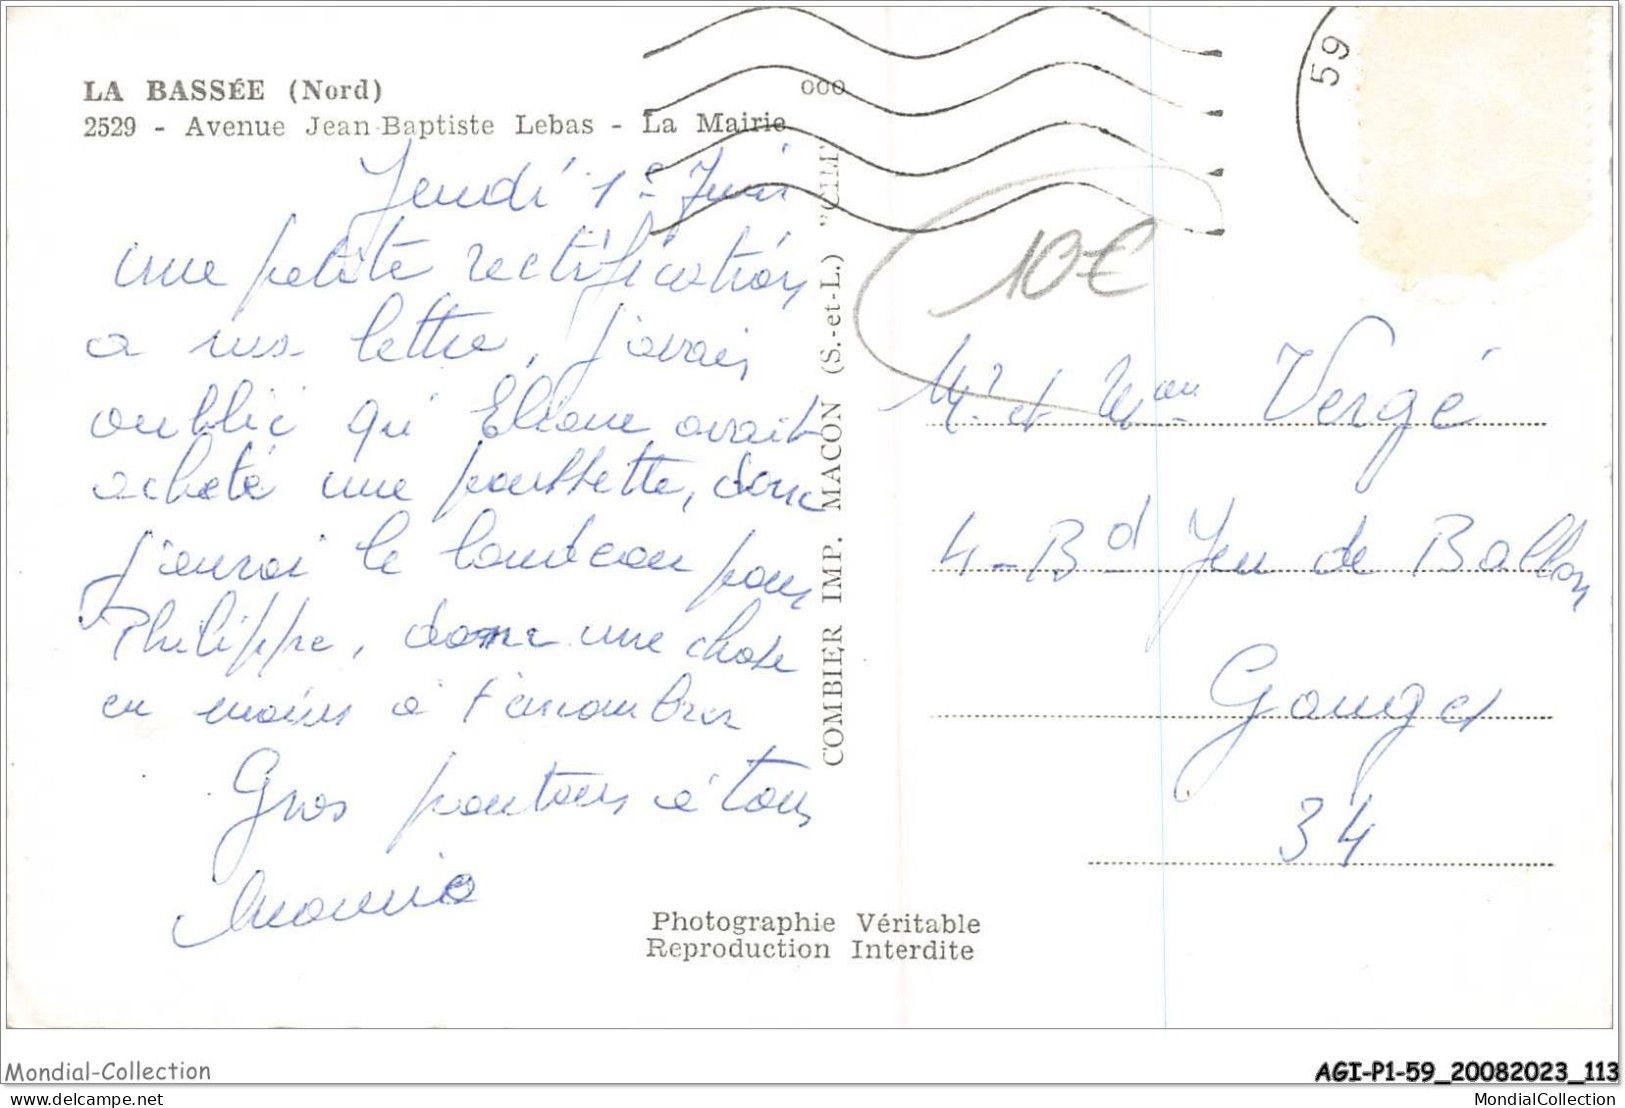 LA BASSÉE (Nord)
2529 - Avenue Jean-Baptiste Lebas - La Mairie
ooo
59
Jeudi 1er Juin
une petite rectification
a ma lettre, j'avais
oublié qu'Eliane avait
acheté une poussette, donc
j'aurai le landeau pour
Philippe, donc une chose
en moins à t'encombrer
Gros poutous à tous
Mamie
COMBIER IMP. MACON (S.-et-L.) "CIM"
10€
Mr et Mme Vergé
4-Bd Jeu de Ballon
Ganges
34
Photographie Véritable
Reproduction Interdite
Mondial-Collection
AGI-P1-59_20082023_113
delcampe.net
MondialCollection